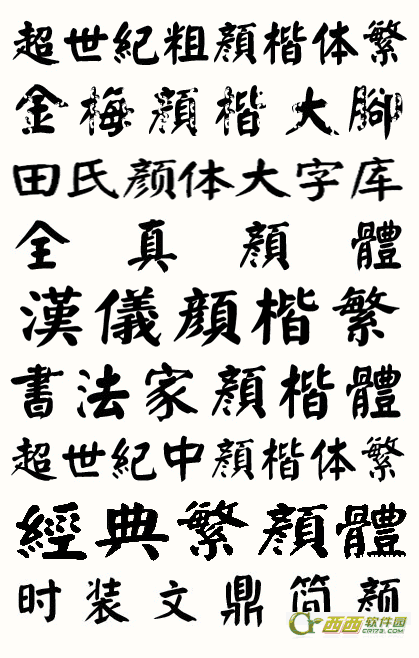 超世紀粗顏楷体繁
金梅顏楷大腳
田氏颜体大字库
全真顏體
漢儀顏楷繁
書法家顏楷體
超世紀中顏楷体繁
經典繁顏體
时装文鼎简颜
西西软件园
CR173.com